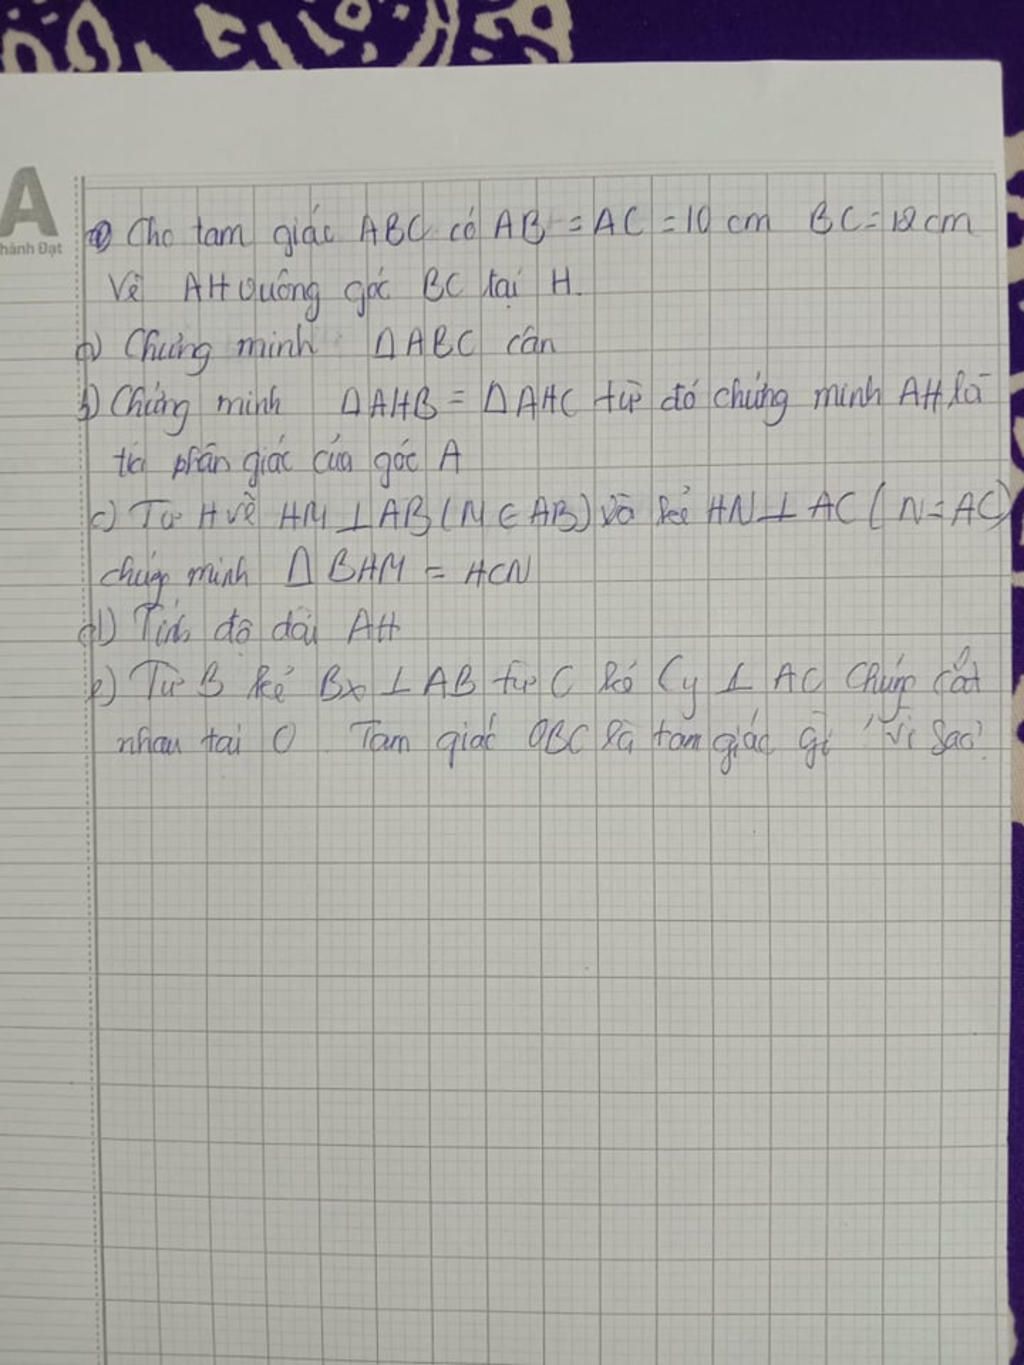 A
hành Đạt
① Cho tam giác ABC có AB = AC = 10 cm BC = 12 cm
Vẽ AH vuông góc BC tại H.
a) Chứng minh ΔABC cân
b) Chứng minh ΔAHB = ΔAHC từ đó chứng minh AH là
tia phân giác của góc A
c) Từ H vẽ HM ⊥ AB (M ∈ AB) và kẻ HN ⊥ AC (N = AC)
chứng minh Δ BHM = HCN
d) Tính độ dài AH
e) Từ B kẻ Bx ⊥ AB từ C kẻ Cy ⊥ AC Chúng cắt
nhau tại O Tam giác OBC là tam giác gì Vì Sao?